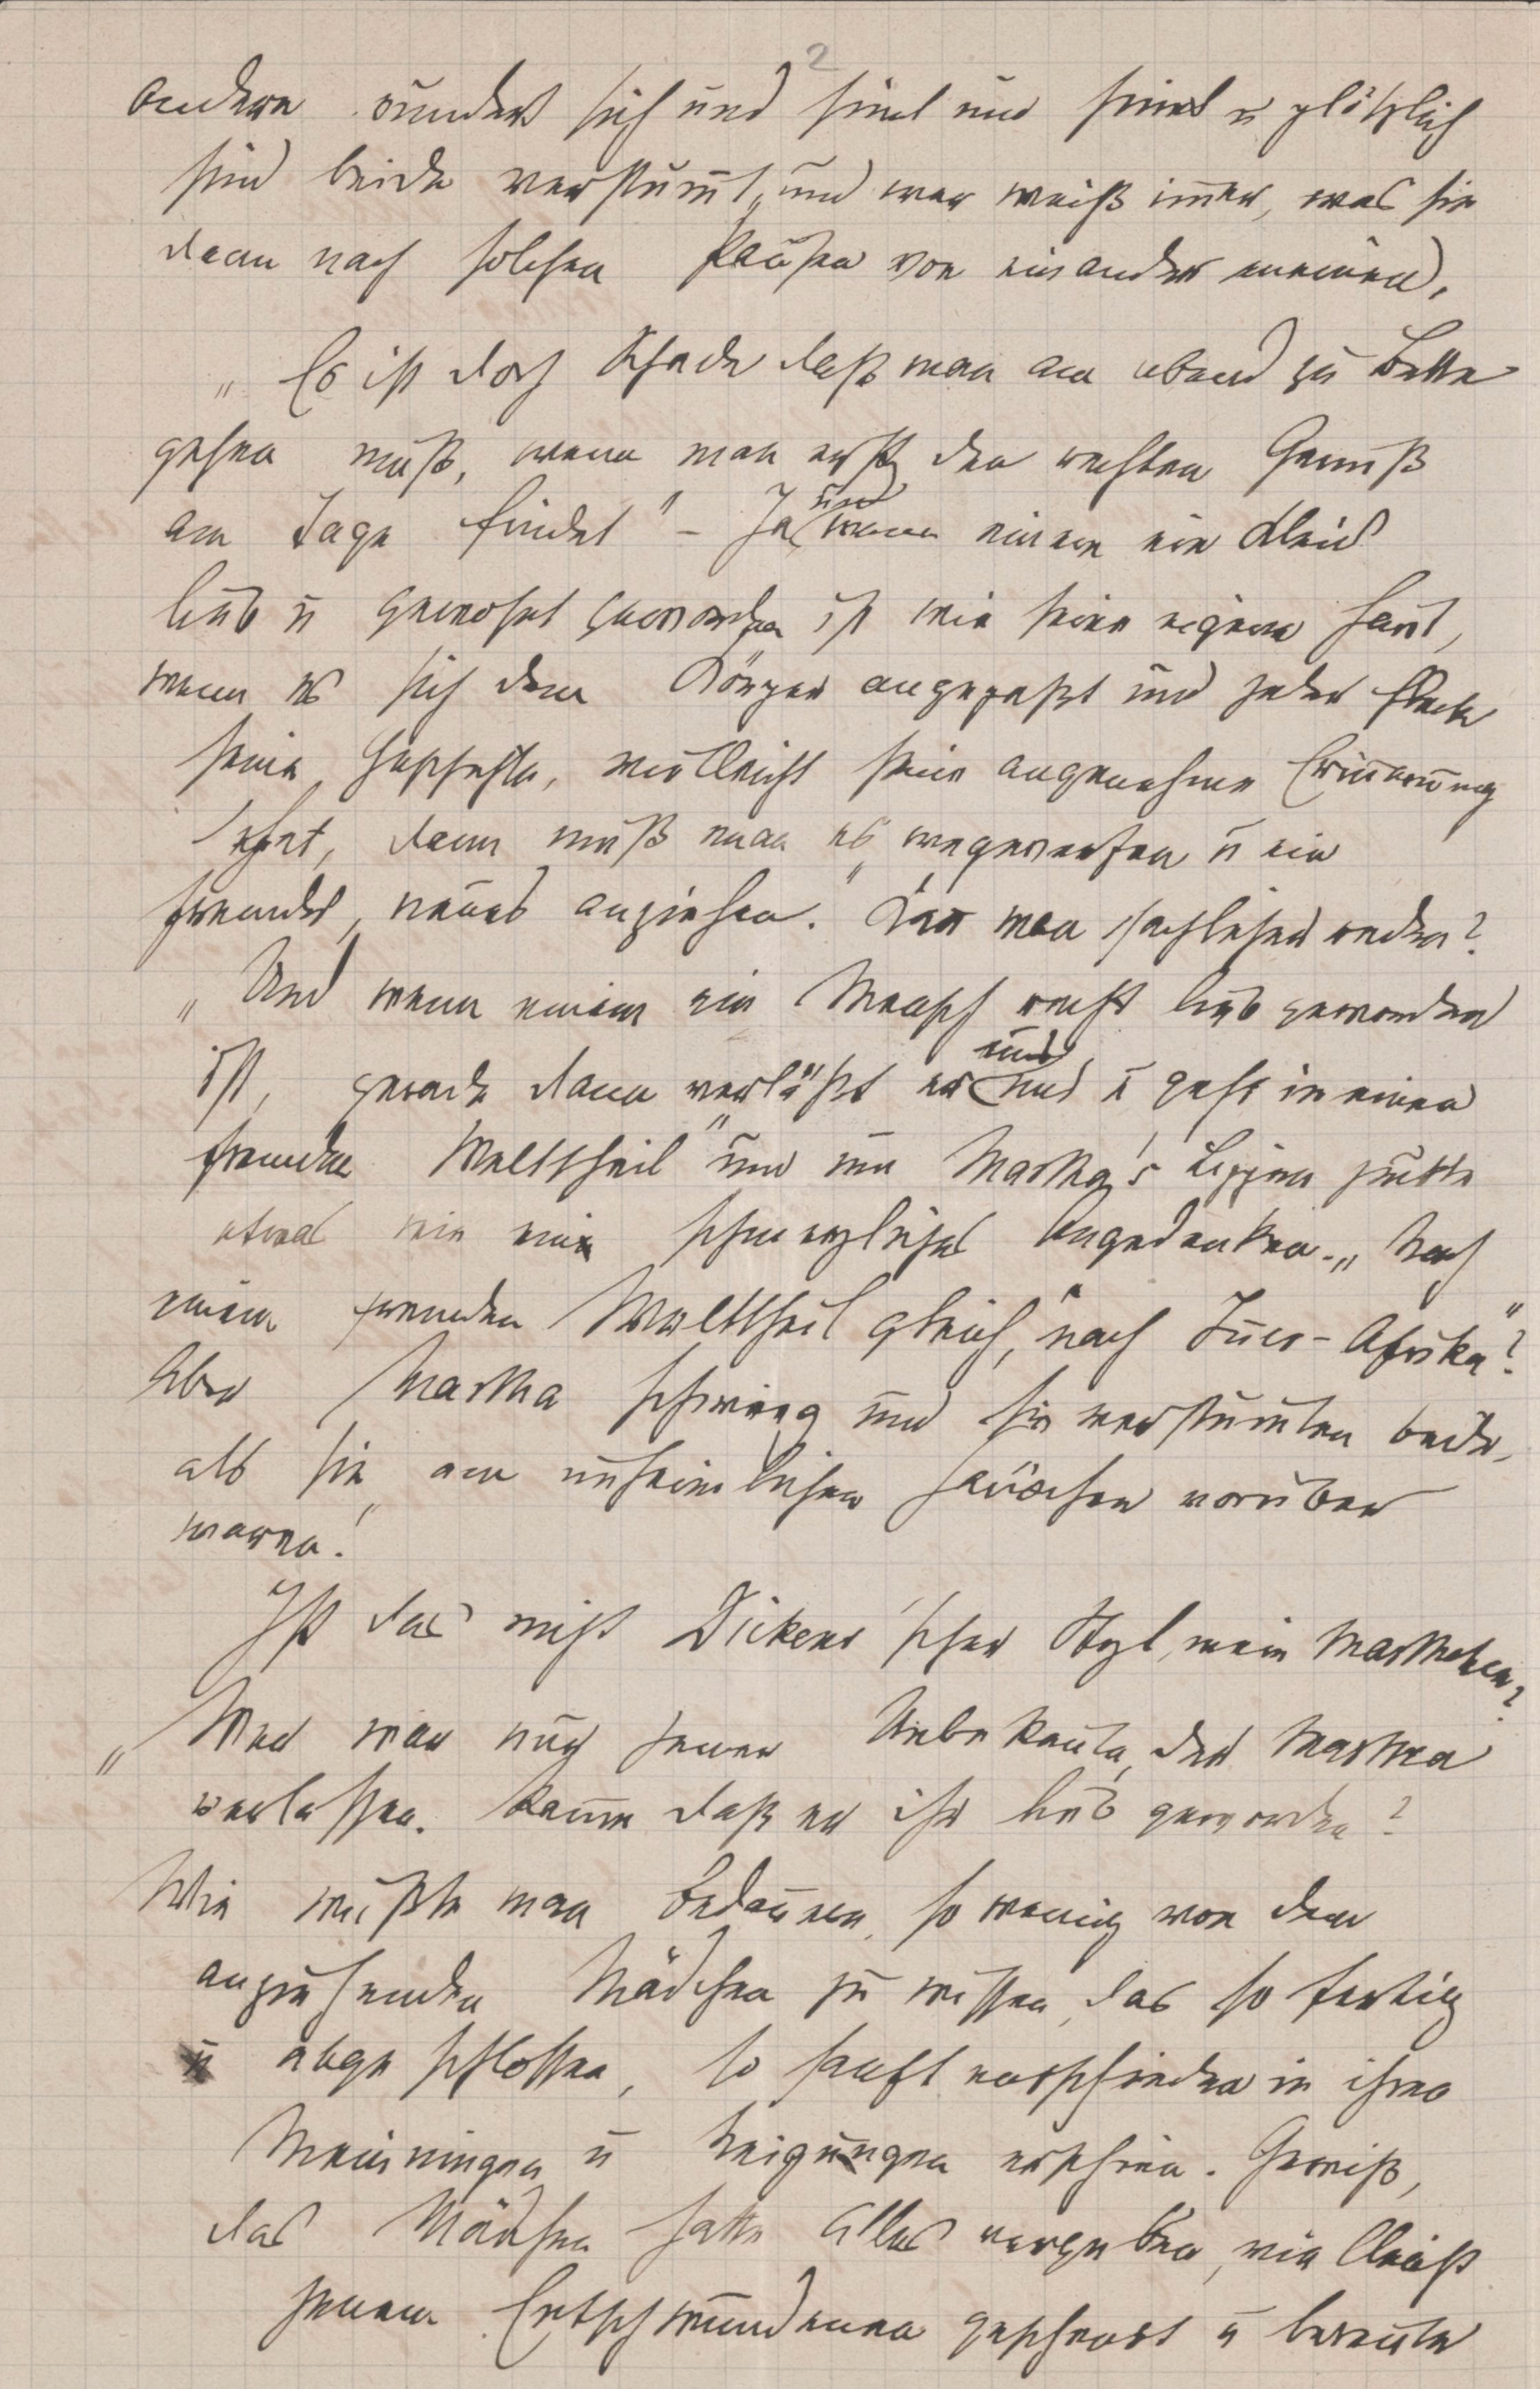 2
andern rundet sich und sinnt und sinnt u plötzlich
sind beide verstum̄t, und wer weiß im̄er, was sie
dann nach solchen Pausen von einander meinen.
„Es ist doch schade daß man am abend zu Bette
gehen muß, wenn man erst den rechten Genuß
am Tage findet" – Ja und wenn einem ein Kleid
lieb u gewohnt geworden ist wie seine eigene Haut,
wenn es sich dem Körper angepaßt und jeder Fleck
seine Geschichte, vielleicht seine angenehme Erinnerung
hat, dann muß man es wegwerfen u ein
fremdes, neues anziehen." Kan̄ man sachlicher reden?
„Und wenn einem ein Mensch recht lieb geworden
ist, gerade dann verläßt er uns u geht in einen
fremden Welttheil" und um Martha's Lippen zuckte
etwas wie ein schmerzliches Angedenken. „Nach
einem fremden Welttheil gleich, nach In̄er-Afrika"?
Aber Martha schwieg und sie verstum̄ten beide,
als sie am unheimlichen Häuschen vorüber
waren!"
Ist das nicht Dickens'scher Styl, mein Marthchen?
„Wer war nur jener Unbekannte, der Martha
verlassen. Kaum daß er ihr lieb geworden?
Wie mußte man bedauern, so wenig von dem
anziehenden Mädchen zu wissen, das so fertig
u abgeschlossen, so sanft entschieden in ihren
Meinungen u Neigungen erschien. Gewiß,
das Mädchen hatte alles vergeben, vielleicht
jenem Entschwundenen geschenkt u bereute